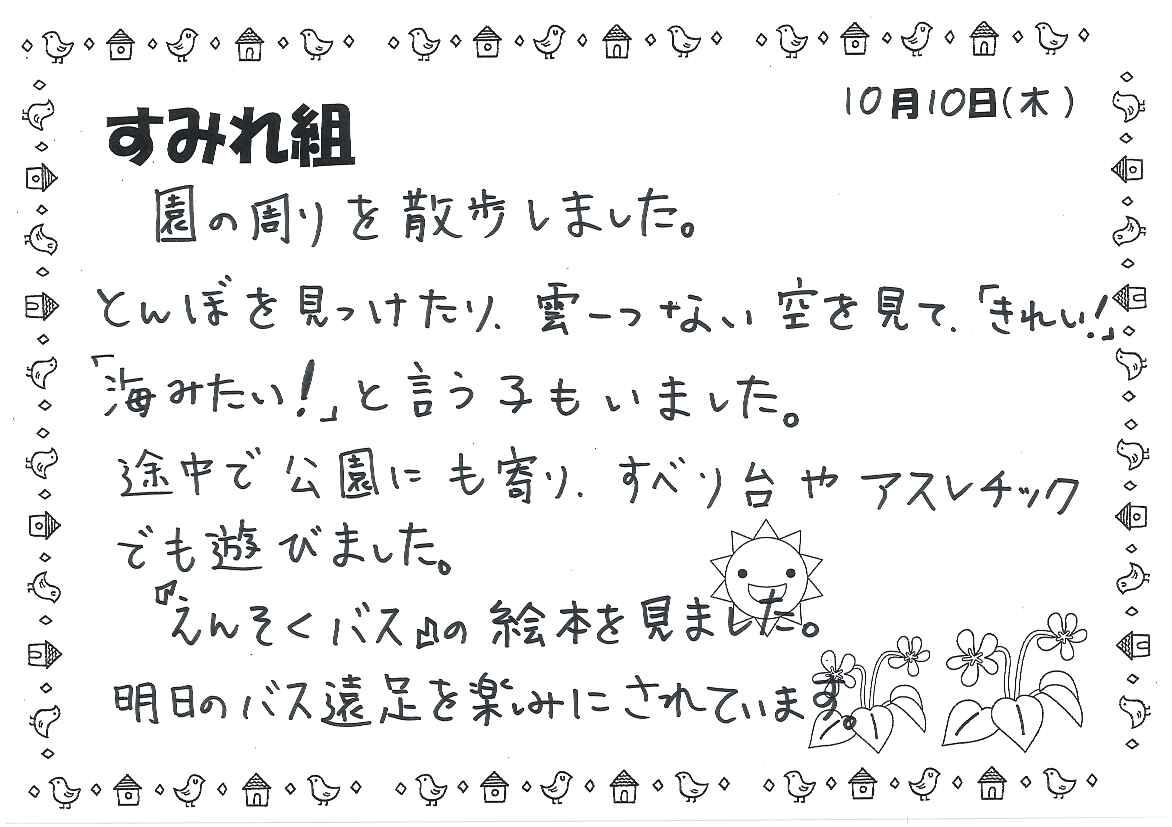 10月10日(木)
すみれ組
園の周りを散歩しました。
とんぼを見つけたり、雲一つない空を見て、「きれい!」
「海みたい!」と言う子もいました。
途中で公園にも寄り、すべり台やアスレチック
でも遊びました。
『えんそくバス』の絵本を見ました。
明日のバス遠足を楽しみにされています。